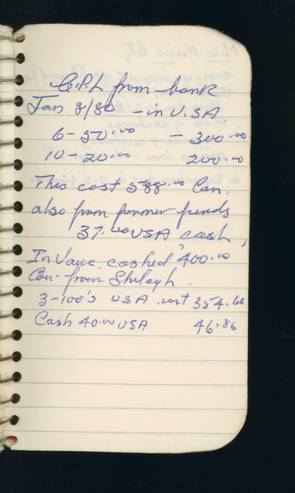 from bank
Jan 8/80 - in U.SA
6 - 50.00 - 300.00
10 - 20.00 200.00
This cost 588.00 Can,
also from former funds
37.00 USA cash,
In Vanc. cashed 400.00
Can. from Shelagh.
3 - 100's USA 354.66
Cash 40.00 USA 46.86